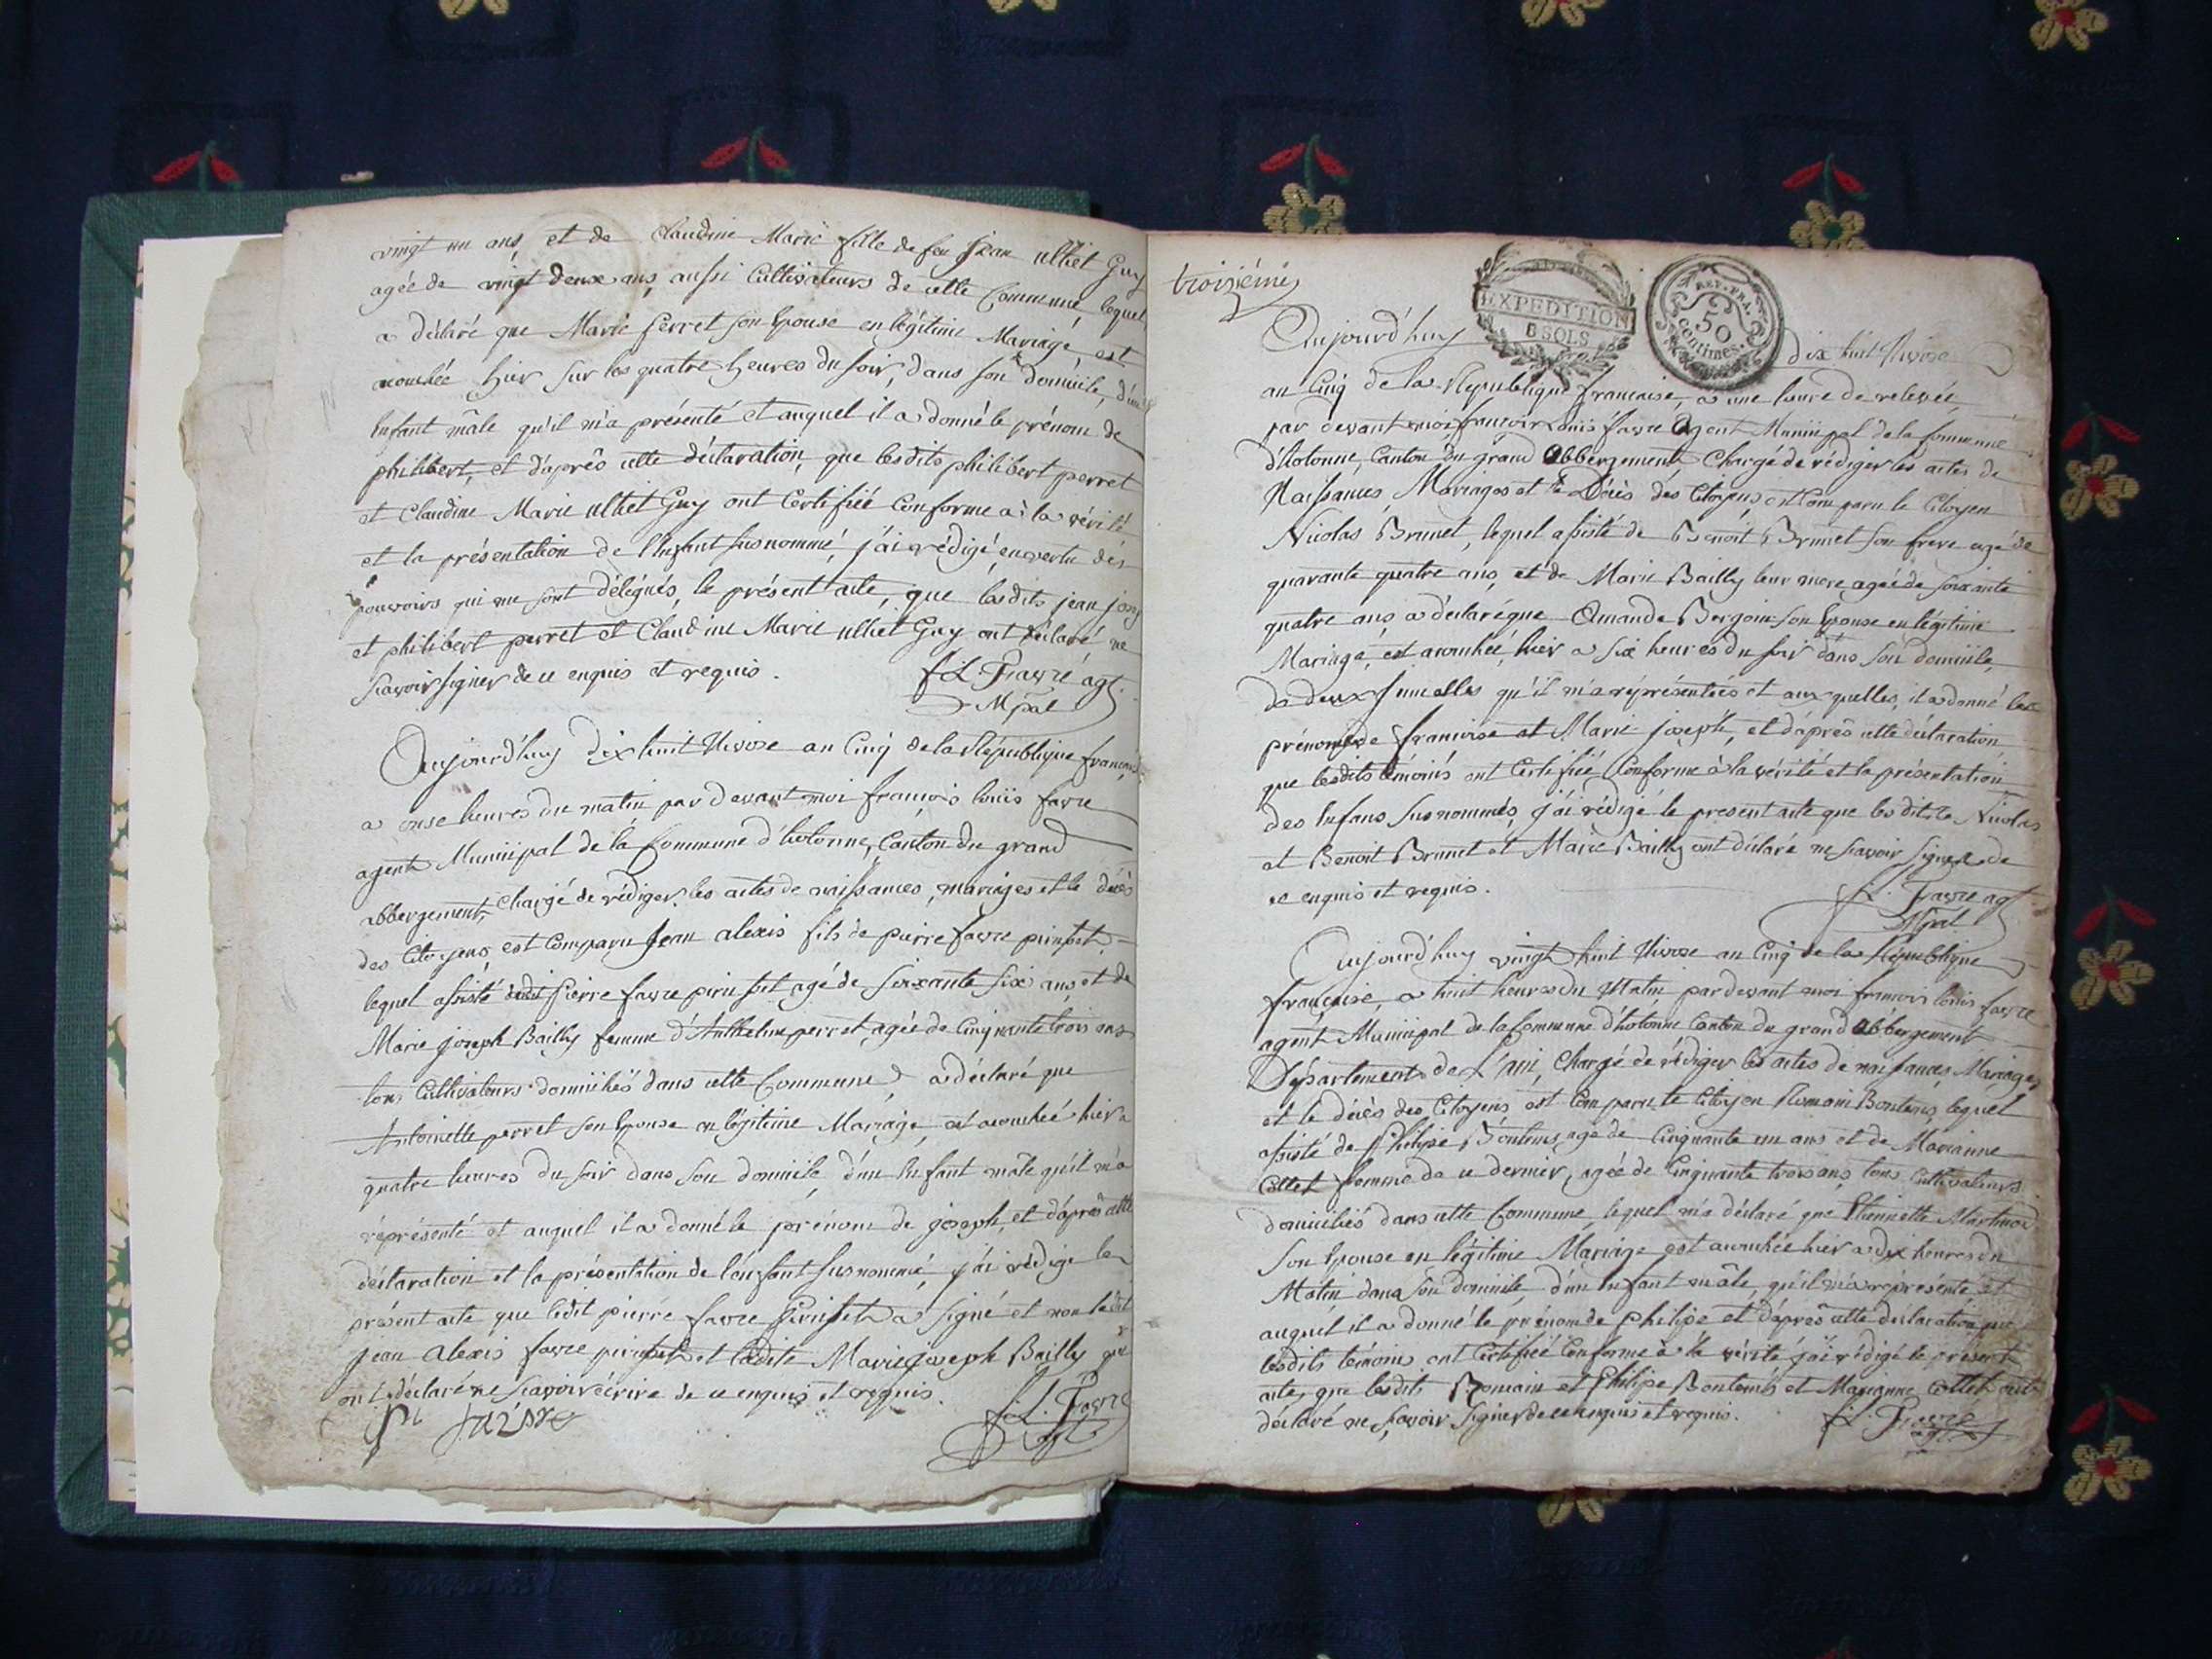 vingt un ans, et de Claudine Marie fille de feu Jean ulliet Guy
agée de vingt deux ans, aussi Cultivateurs de cette Commune, lequel
a déclaré que Marie perret son Epouse en légitime Mariage, est
acouchée hier sur les quatre heures du soir, dans son domicile, d'un
Enfant mâle qu'il m'a présenté et auquel il a donné le prénom de
philibert, et d'après cette déclaration, que lesdits philibert perret
et Claudine Marie ulliet Guy ont Certifiée Conforme à la vérité
et la présentation de l'Enfant susnommé, j'ai rédigé, en vertu des
pouvoirs qui me sont délégués, le présent acte, que lesdits jean
et philibert perret et Claudine Marie ulliet Guy ont déclaré ne
scavoir signer de ce enquis et requis. f.L. Favre agt.
Mpal
Aujourd'huy dix huit Nivose an Cinq de la République française
a onse heures du matin par devant moi françois louis favre
agent Municipal de la Commune d'hotonne, Canton du grand
abbergement, Chargé de rédiger les actes de naissances, mariages et le décès
des Citoyens, est Comparu Jean alexis fils de pierre favre
lequel assisté dudit Pierre favre agé de soixante six ans, et de
Marie joseph Bailly femme d'Anthelme perret, agée de Cinquante trois ans
tous Cultivateurs domiciliés dans cette Commune, a déclaré que
Antoinette perret son Epouse en légitime Mariage, est acouchée hier a
quatre heures du soir dans son domicile, d'un Enfant mâle qu'il m'a
réprésenté et auquel il a donné le prénom de joseph, et d'après cette
déclaration et la présentation de l'enfant susnommé, j'ai rédigé le
présent acte que ledit pierre favre a signé et non ledit
Jean alexis favre et ladite Marie joseph Bailly qui
ont déclaré ne scavoir écrire de ce enquis et requis. f.L. Favre
agt
troisième
EXPEDITION
SOLS
REP. FRA.
50
centimes.
Aujourd'huy dix huit Nivose
an Cinq de la République française, a une heure de relevée
par devant moi françois louis favre Agent Municipal de la Commune
d'hotonne, Canton du grand Abbergement Chargé de rédiger les actes de
Naissances, Mariages et le Décès des Citoyens, est Comparu le Citoyen
Nicolas Brunet, lequel assisté de Benoit Brunet son frere agé de
quarante quatre ans, et de Marie Bailly leur mere agée de soixante
quatre ans, a déclaré que Amande Bergoin son Epouse en légitime
Mariage, est acouchée, hier a six heures du soir dans son domicile,
de deux Jumelles qu'il m'a réprésentées et aux quelles, il a donné les
prénoms de françoise et Marie joseph, et d'après cette déclaration
que lesdits témoins ont Certifiée Conforme à la vérité et la présentation
des Enfans susnommés, j'ai rédigé le present acte que lesdits Nicolas
et Benoit Brunet et Marie Bailly ont déclaré ne scavoir signer de
ce enquis et requis. f.L. Favre agt
Mpal
Aujourd'huy vingt huit Nivose an Cinq de la République
française, a huit heures du Matin, par devant moi francois louis favre
agent Municipal de la Commune d'hotonne Canton du grand Abbergement
Département de L'ain, Chargé de rédiger les actes de naissances, Mariages
et le décès des Citoyens, est Comparu le Citoyen Romain Bontems, lequel
assisté de Philipe Bontems agé de Cinquante un ans et de Marianne
Collet femme de ce dernier, agée de Cinquante trois ans, tous Cultivateurs
domiciliés dans cette Commune, lequel m'a déclaré que Etiennette Martinod
son Epouse en légitime Mariage est acouchée hier a dix heures du
Matin dans son domicile, d'un Enfant mâle, qu'il m'a réprésenté et
auquel il a donné le prénom de Philipe et d'après cette déclaration que
lesdits témoins ont Certifiée Conforme à la vérité j'ai rédigé le présent
acte, que lesdits Romain et Philipe Bontems et Marianne Collet ont
déclaré ne scavoir signer de ce enquis et requis. f.L. Favre
agt